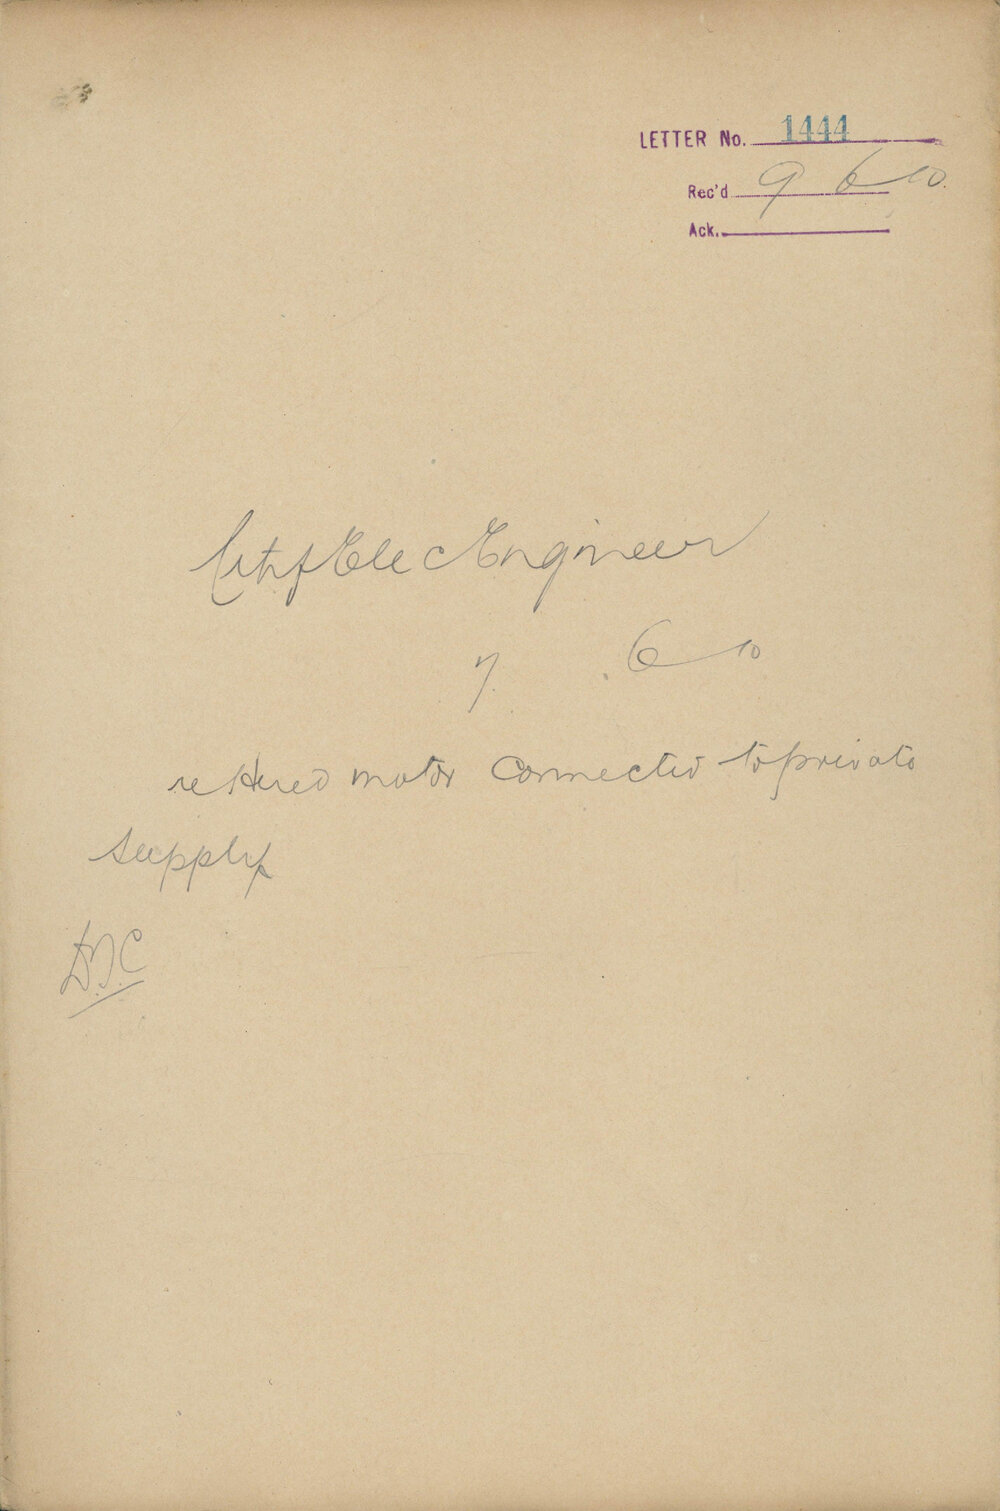 LETTER No. 1444
Rec'd 9 6 10.
Ack.
City Elec Engineer
7. 6 10
re Hired motor connected to private
supply